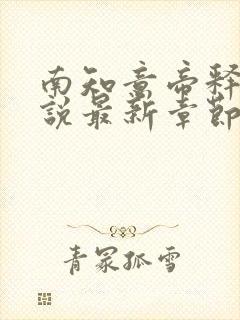 南知意帝释
說最新章節
青冢孤雪